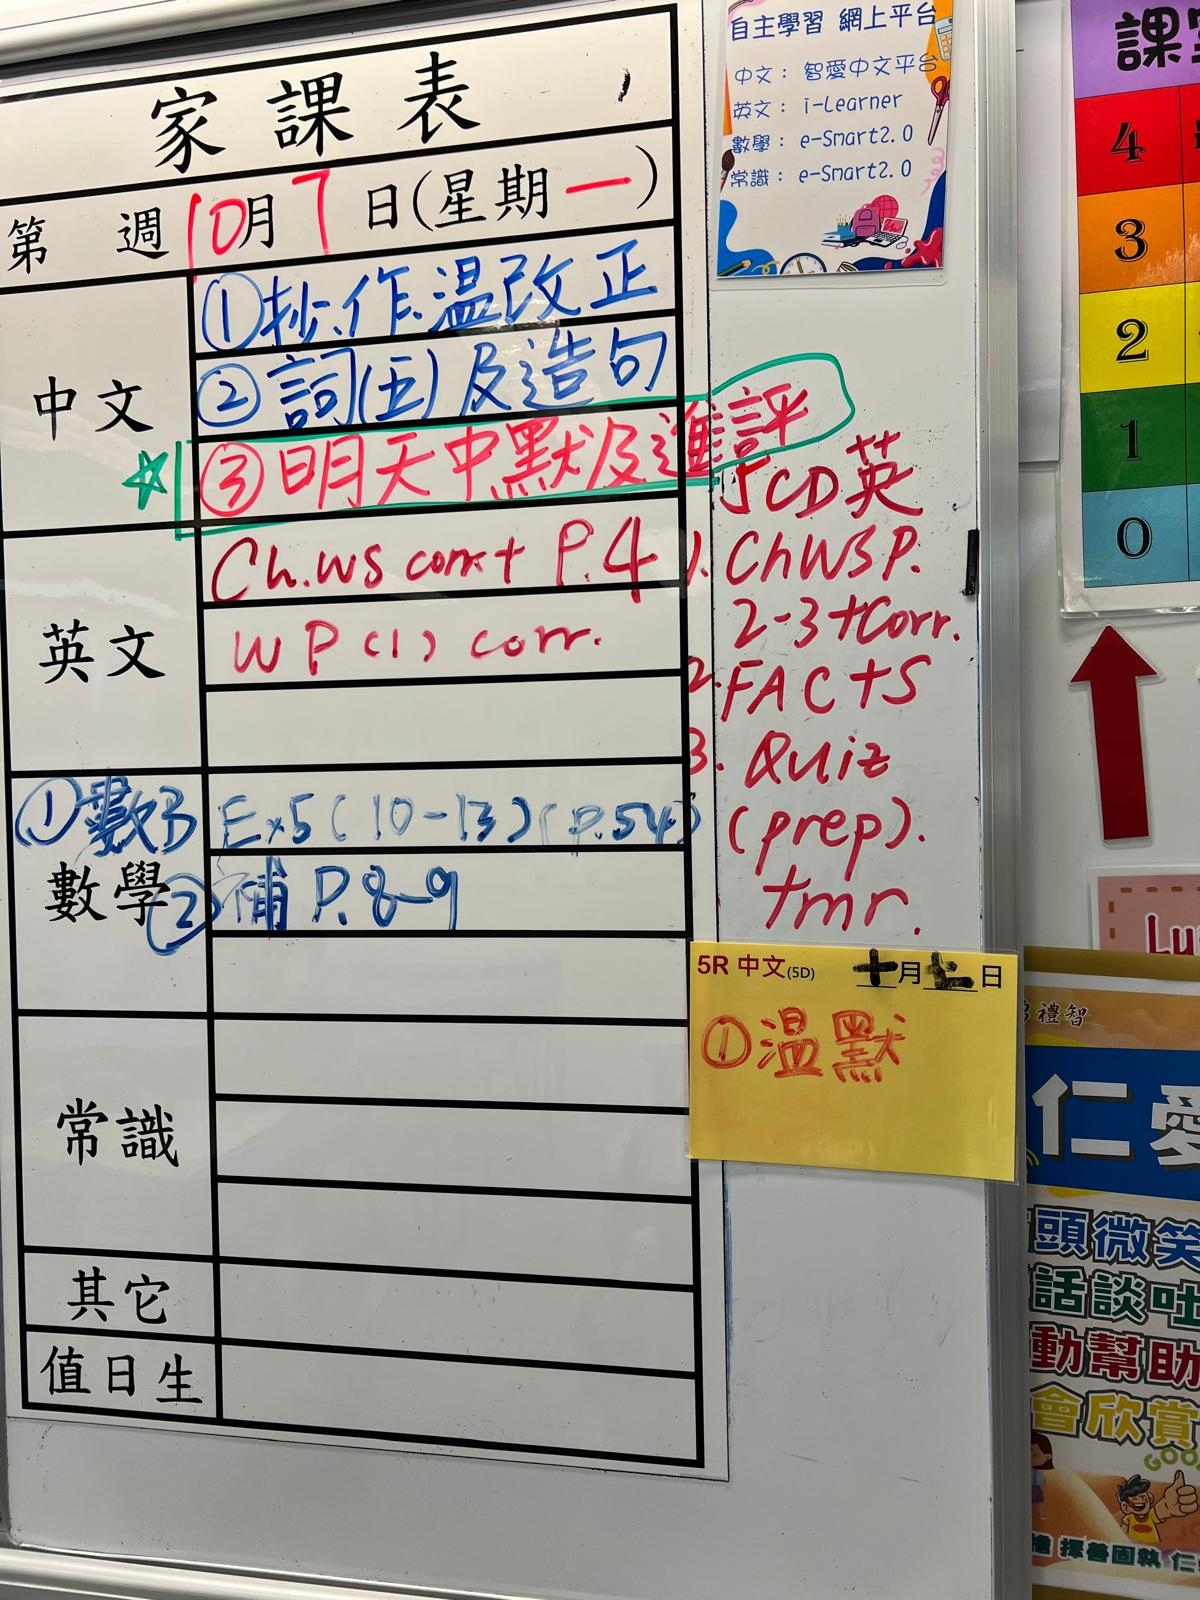 家課表
第 週 10月7日(星期一)
中文
①抄.作.溫改正
②詞(五)及造句
③明天中默及進評
英文
Ch.WS corr.+ P.4
WP(1) corr.
數學
①數乃 Ex5(10-13)(P.54)
②補 P.8-9
常識
其它
值日生
自主學習 網上平台
中文: 智愛中文平台
英文: i-Learner
數學: e-Smart2.0
常識: e-Smart2.0
CD英
1. ChWSP.
2-3+Corr.
2. FACTS
3. Quiz
(prep).
tmr.
5R 中文(5D) 十月七日
①溫默
4
3
2
1
0
禮智
仁愛
頭微笑
話談吐
動幫助
會欣賞
擇善固執 仁